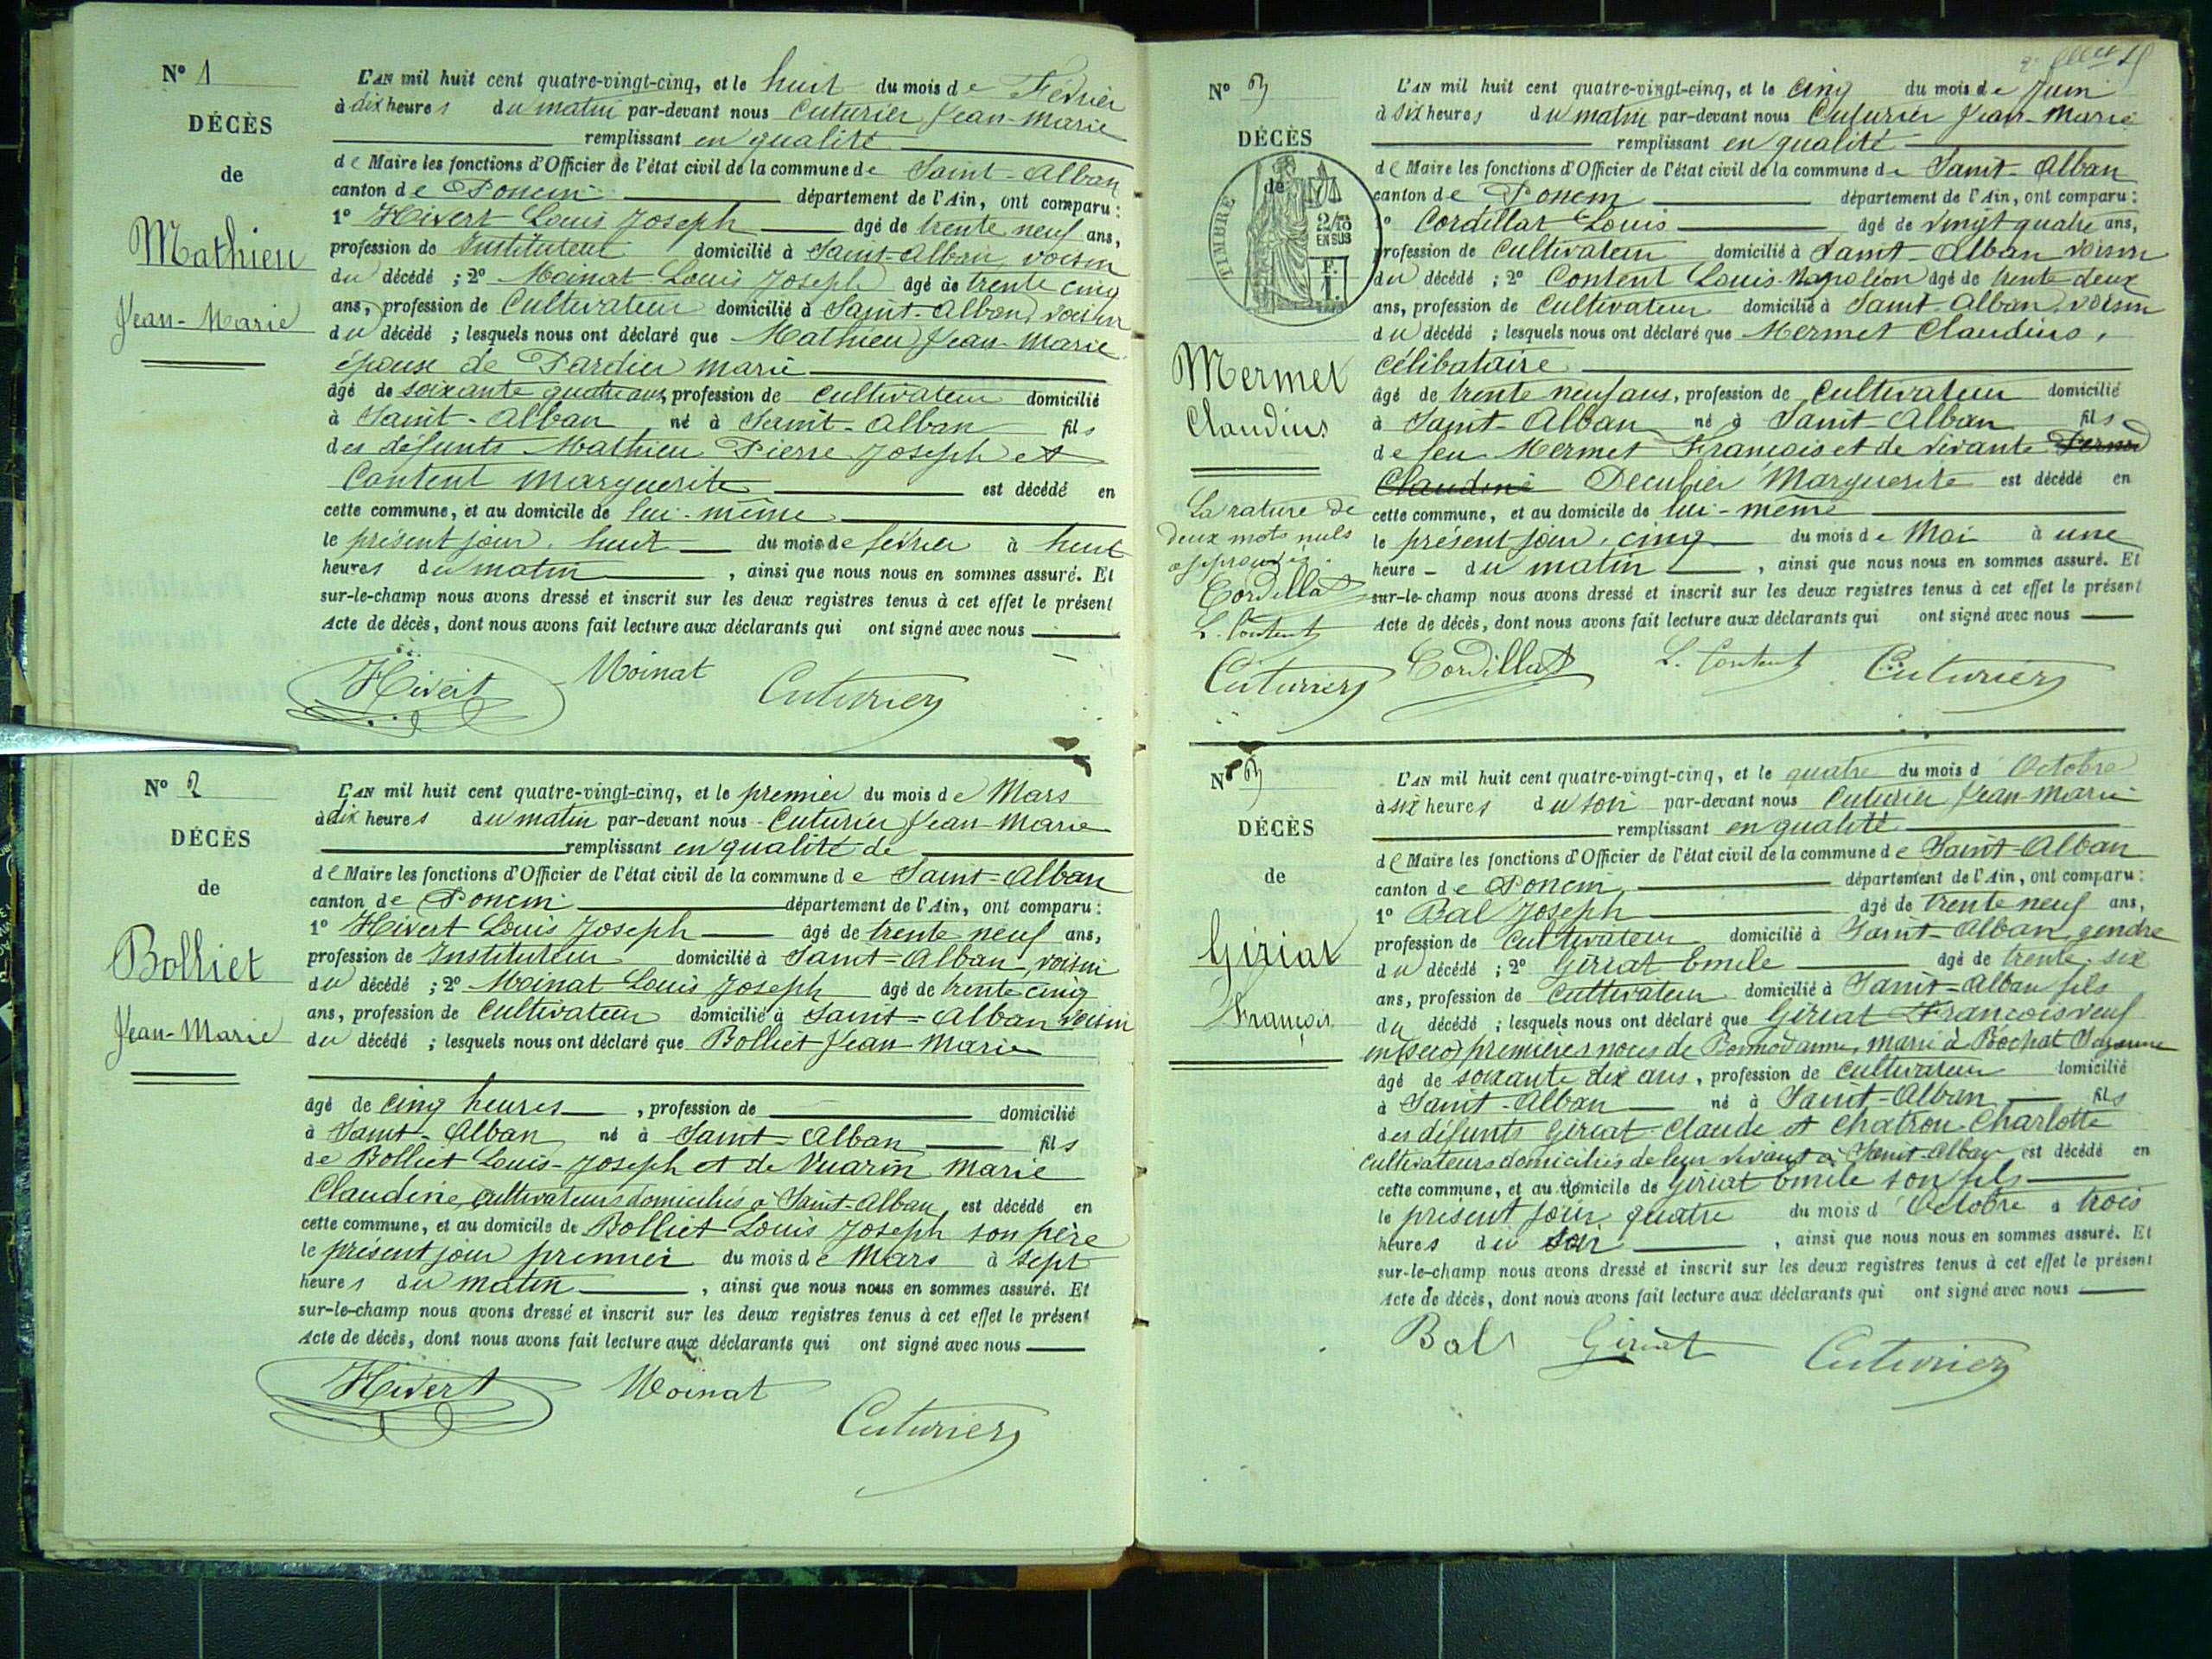 N° 1
DÉCÈS
de
Mathieu
Jean-Marie
L'AN mil huit cent quatre-vingt-cinq, et le huit du mois de Février
à dix heures du matin par-devant nous Cuturier Jean-Marie
remplissant en qualité
de Maire les fonctions d'Officier de l'état civil de la commune de Saint-Alban
canton de Poncin département de l'Ain, ont comparu :
1° Hivert Louis Joseph âgé de trente neuf ans,
profession de Instituteur domicilié à Saint-Alban, voisin
du décédé ; 2° Moinat Louis Joseph âgé de trente cinq
ans, profession de Cultivateur domicilié à Saint-Alban, voisin
du décédé ; lesquels nous ont déclaré que Mathieu Jean-Marie
époux de Pardier marie
âgé de soixante quatre ans, profession de cultivateur domicilié
à Saint-Alban né à Saint-Alban fils
des défunts Mathieu Pierre Joseph et
Content Marguerite est décédé en
cette commune, et au domicile de lui-même
le présent jour, huit du mois de février à huit
heures du matin, ainsi que nous nous en sommes assuré. Et
sur-le-champ nous avons dressé et inscrit sur les deux registres tenus à cet effet le présent
Acte de décès, dont nous avons fait lecture aux déclarants qui ont signé avec nous
Hivert Moinat Cuturier
N° 2
DÉCÈS
de
Bolliet
Jean-Marie
L'AN mil huit cent quatre-vingt-cinq, et le premier du mois de Mars
à dix heures du matin par-devant nous Cuturier Jean-Marie
remplissant en qualité de
de Maire les fonctions d'Officier de l'état civil de la commune de Saint-Alban
canton de Poncin département de l'Ain, ont comparu :
1° Hivert Louis Joseph âgé de trente neuf ans,
profession de Instituteur domicilié à Saint-Alban, voisin
du décédé ; 2° Moinat Louis Joseph âgé de trente cinq
ans, profession de Cultivateur domicilié à Saint-Alban voisin
du décédé ; lesquels nous ont déclaré que Bolliet Jean-Marie
âgé de cinq heures, profession de domicilié
à Saint-Alban né à Saint-Alban fils
de Bolliet Louis-Joseph et de Vuarin Marie
Claudine, cultivateurs domiciliés à Saint-Alban, est décédé en
cette commune, et au domicile de Bolliet Louis Joseph son père
le présent jour premier du mois de Mars à sept
heures du matin, ainsi que nous nous en sommes assuré. Et
sur-le-champ nous avons dressé et inscrit sur les deux registres tenus à cet effet le présent
Acte de décès, dont nous avons fait lecture aux déclarants qui ont signé avec nous
Hivert Moinat Cuturier
N° 3
DÉCÈS
de
TIMBRE
2/10
EN SUS
Mermet
Claudius
La rature de
deux mots nuls
approuvée.
Cordillat
L. Content
Cuturier
L'AN mil huit cent quatre-vingt-cinq, et le cinq du mois de Juin
à dix heures du matin par-devant nous Cuturier Jean-Marie
remplissant en qualité
de Maire les fonctions d'Officier de l'état civil de la commune de Saint-Alban
canton de Poncin département de l'Ain, ont comparu :
1° Cordillat Louis âgé de vingt quatre ans,
profession de Cultivateur domicilié à Saint-Alban voisin
du décédé ; 2° Content Louis-Napoléon âgé de trente deux
ans, profession de Cultivateur domicilié à Saint-Alban, voisin
du décédé ; lesquels nous ont déclaré que Mermet Claudius,
célibataire
âgé de trente neuf ans, profession de cultivateur domicilié
à Saint-Alban né à Saint-Alban fils
de feu Mermet François et de vivante
Claudine Decubier Marguerite est décédé en
cette commune, et au domicile de lui-même
le présent jour, cinq du mois de Mai à une
heure du matin, ainsi que nous nous en sommes assuré. Et
sur-le-champ nous avons dressé et inscrit sur les deux registres tenus à cet effet le présent
Acte de décès, dont nous avons fait lecture aux déclarants qui ont signé avec nous
Cordillat L. Content Cuturier
N°
DÉCÈS
de
Giriat
François
L'AN mil huit cent quatre-vingt-cinq, et le quatre du mois d'Octobre
à six heures du soir par-devant nous Cuturier Jean-Marie
remplissant en qualité
de Maire les fonctions d'Officier de l'état civil de la commune de Saint-Alban
canton de Poncin, département de l'Ain, ont comparu :
1° Bal Joseph âgé de trente neuf ans,
profession de Cultivateur domicilié à Saint-Alban gendre
du décédé ; 2° Giriat Emile âgé de trente-six
ans, profession de Cultivateur domicilié à Saint-Alban fils
du décédé ; lesquels nous ont déclaré que Giriat François veuf
en premières noces de anne, marié à Bochat
âgé de soixante dix ans, profession de cultivateur domicilié
à Saint-Alban né à Saint-Alban fils
des défunts Giriat Claude et Chatron Charlotte
cultivateurs domiciliés de leur vivant à Saint-Alban est décédé en
cette commune, et au domicile de Giriat Emile son fils
le présent jour, quatre du mois d'Octobre à trois
heures du soir, ainsi que nous nous en sommes assuré. Et
sur-le-champ nous avons dressé et inscrit sur les deux registres tenus à cet effet le présent
Acte de décès, dont nous avons fait lecture aux déclarants qui ont signé avec nous
Bal Giriat Cuturier